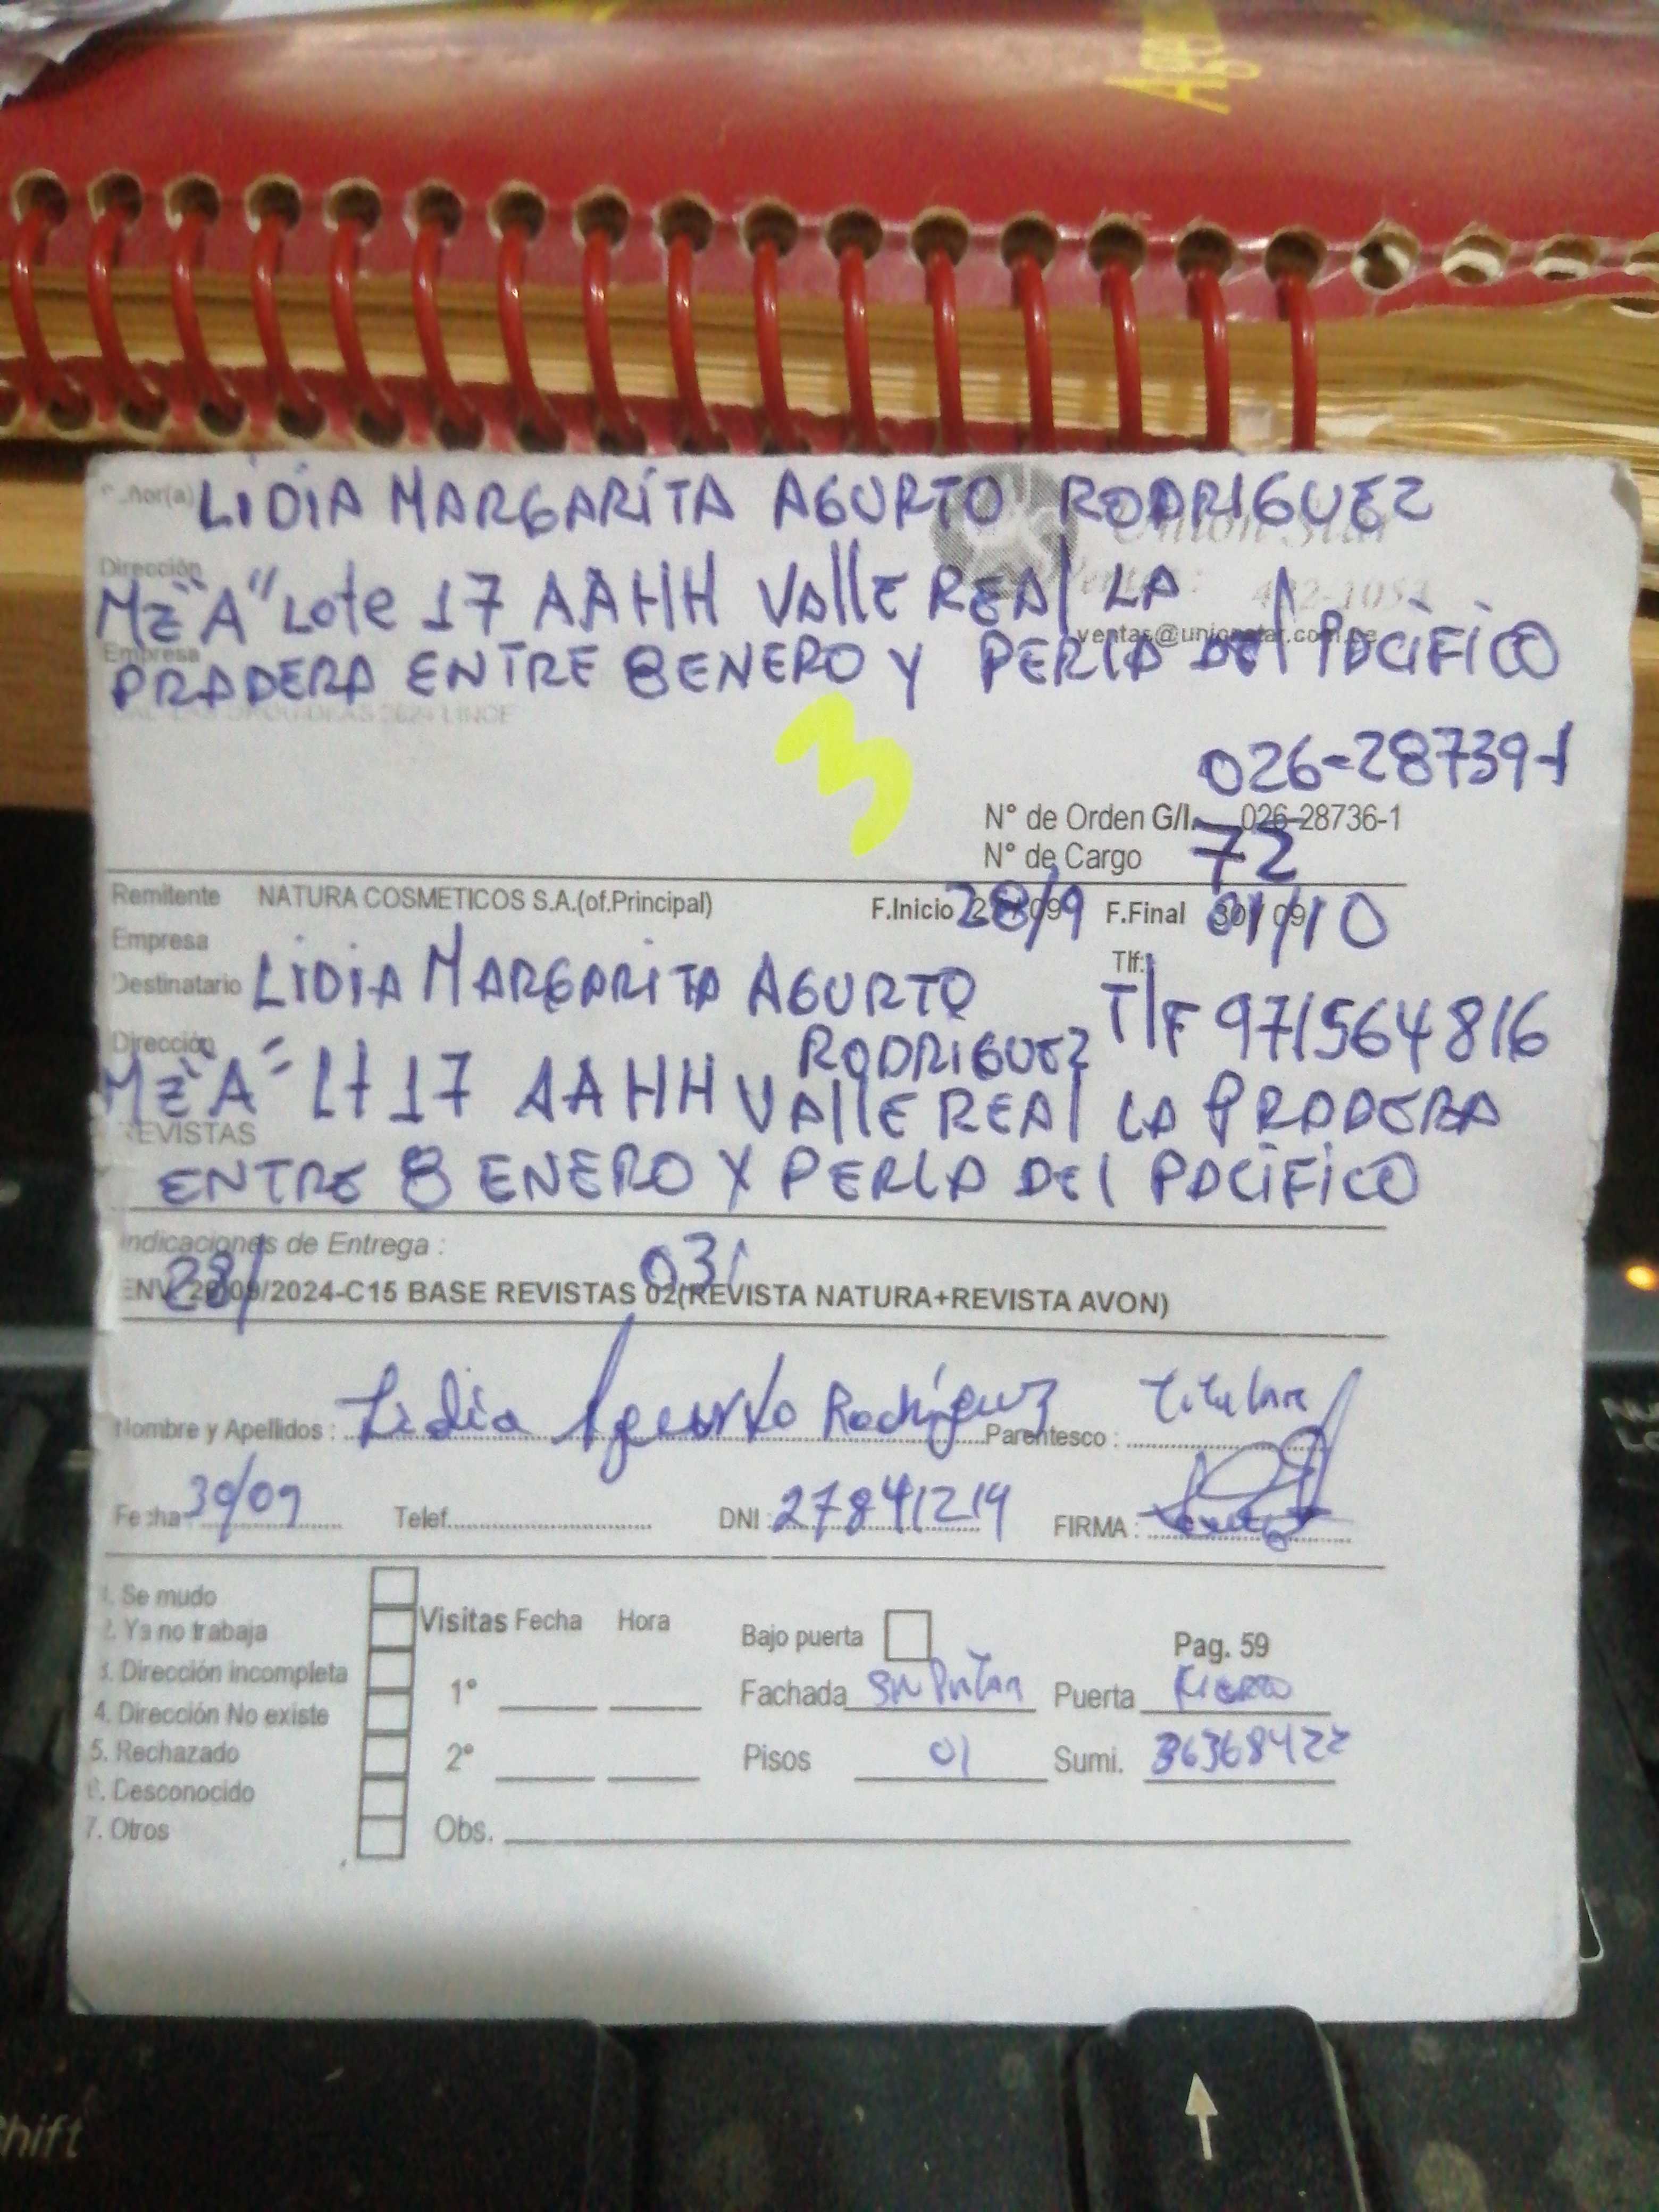 LIDIA MARGARITA AGURTO RODRIGUEZ
Dirección
Mz "A" Lote 17 AAHH VAllE REAl LA
ventas@unionstar.com.pe
Empresa
PRADERA ENTRE 8 ENERO Y PERLA DEl PACIFICO
026-28739-1
3
N° de Orden G/I. 026-28736-1
N° de Cargo 72
Remitente NATURA COSMETICOS S.A.(of.Principal) F.Inicio 28/9 F.Final 01/10
Empresa
Tlf:
Destinatario LIDIA MARGARITA AGURTO
RODRIGUEZ Tlf 971564816
Dirección
Mz "A" Lt 17 AAHH VAllE REAl LA PRADERA
REVISTAS
ENTRE 8 ENERO Y PERLA DEl PACIFICO
Indicaciones de Entrega :
28/ 03
ENV /09/2024-C15 BASE REVISTAS 02(REVISTA NATURA+REVISTA AVON)
Nombre y Apellidos : Lidia Agurto Rodríguez Parentesco : titular
Fecha 30/09 Telef. DNI : 27841219 FIRMA :
1. Se mudo
2. Ya no trabaja
3. Dirección incompleta
4. Dirección No existe
5. Rechazado
6. Desconocido
7. Otros
Visitas Fecha Hora
1°
2°
Obs.
Bajo puerta
Pag. 59
Fachada Sin Pintar Puerta FIERRO
Pisos 01 Sumi. 36368422
Shift